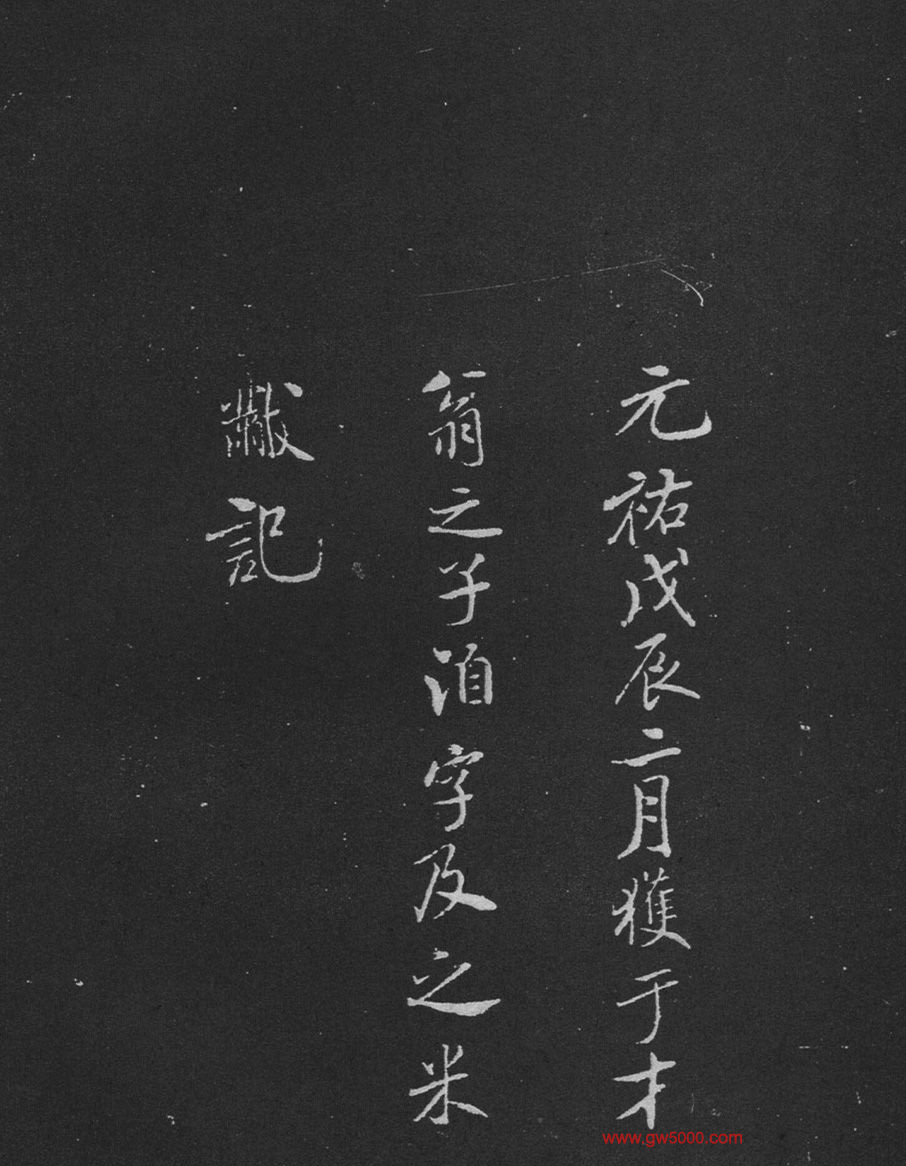 元祐戊辰二月獲于才
翁之子洎字及之米
黻記
www.gw5000.com